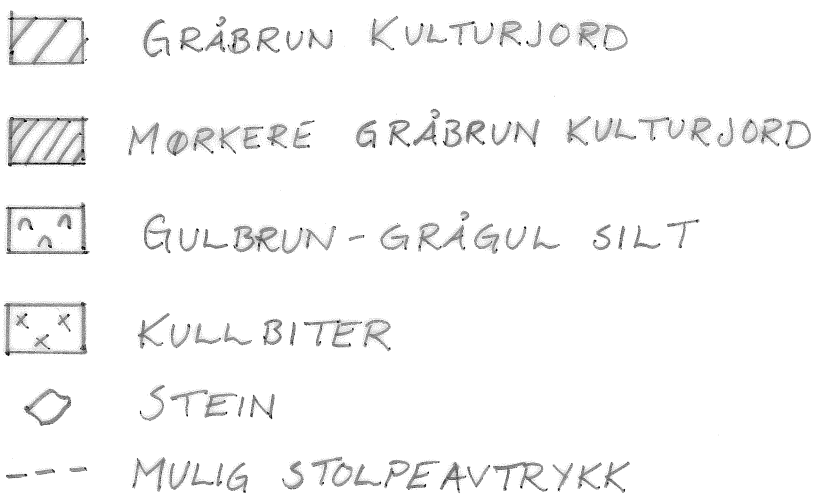 GRÅBRUN KULTURJORD
MØRKERE GRÅBRUN KULTURJORD
GULBRUN-GRÅGUL SILT
KULLBITER
STEIN
MULIG STOLPEAVTRYKK